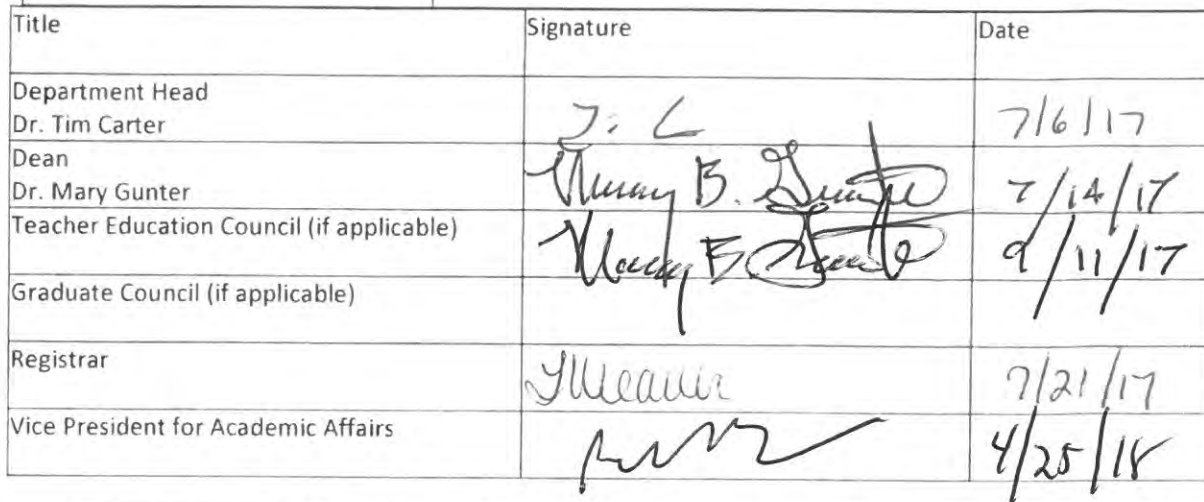 Title Signature Date
Department Head
Dr. Tim Carter J. C 7/6/17
Dean
Dr. Mary Gunter Mary B. Gunter 7/14/17
Teacher Education Council (if applicable) Mary B Gunter 9/11/17
Graduate Council (if applicable)
Registrar TWeaver 7/21/17
Vice President for Academic Affairs 4/25/18